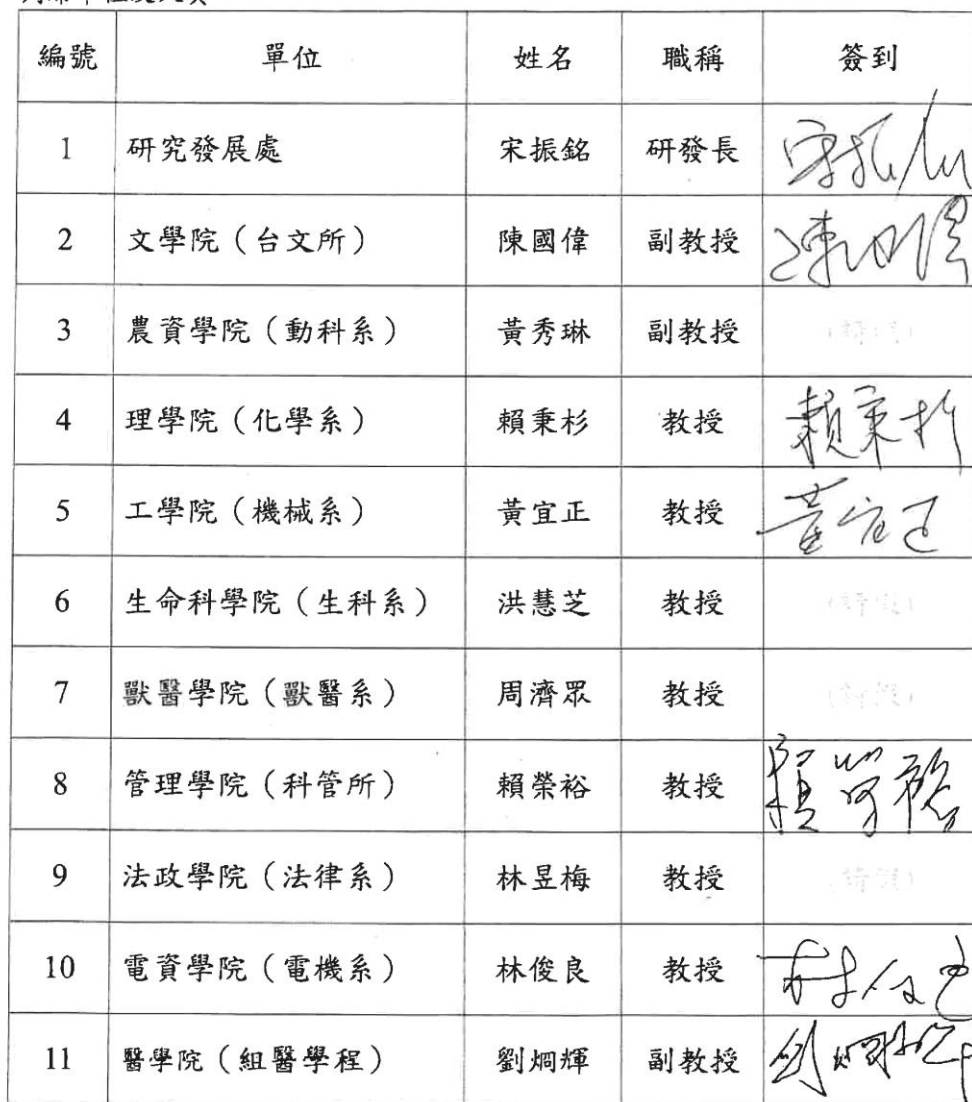 編號 單位 姓名 職稱 簽到
1 研究發展處 宋振銘 研發長 宋振銘
2 文學院（台文所） 陳國偉 副教授 陳國偉
3 農資學院（動科系） 黃秀琳 副教授
4 理學院（化學系） 賴秉杉 教授 賴秉杉
5 工學院（機械系） 黃宜正 教授 黃宜正
6 生命科學院（生科系） 洪慧芝 教授
7 獸醫學院（獸醫系） 周濟眾 教授
8 管理學院（科管所） 賴榮裕 教授 賴榮裕
9 法政學院（法律系） 林昱梅 教授
10 電資學院（電機系） 林俊良 教授 林俊良
11 醫學院（組醫學程） 劉烱輝 副教授 劉烱輝